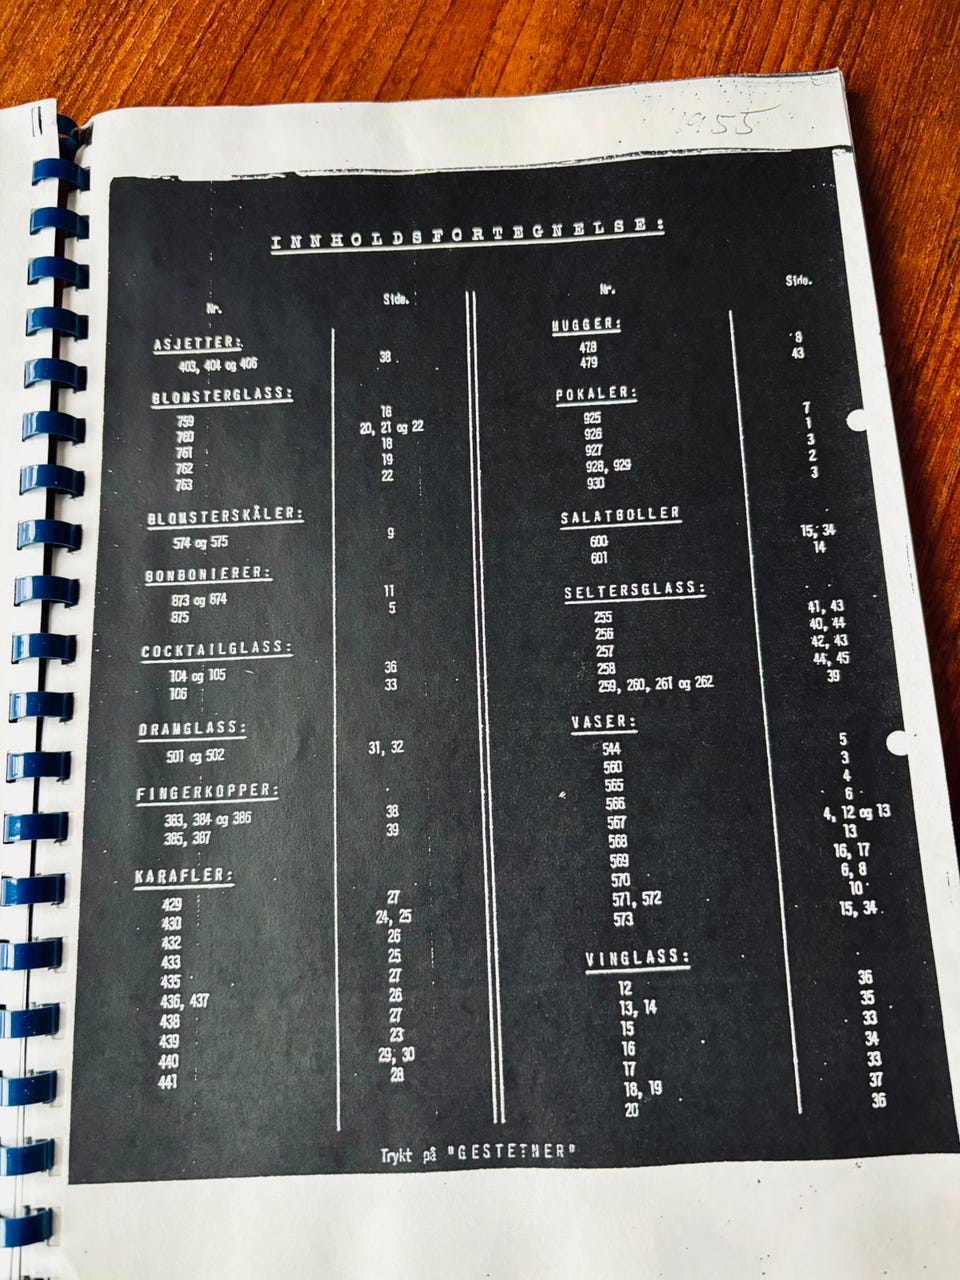 1955
INNHOLDSFORTEGNELSE:
Nr. Side.
ASJETTER:
403, 404 og 406 38
BLOMSTERGLASS:
759 18
760 20, 21 og 22
761 18
762 19
763 22
BLOMSTERSKÅLER:
574 og 575 9
BONBONIERER:
873 og 874 11
875 5
COCKTAILGLASS:
104 og 105 36
106 33
DRAMGLASS:
501 og 502 31, 32
FINGERKOPPER:
383, 384 og 386 38
385, 387 39
KARAFLER:
429 27
430 24, 25
432 26
433 25
435 27
436, 437 26
438 27
439 23
440 29, 30
441 28
Nr. Side.
MUGGER:
478 8
479 43
POKALER:
925 7
926 1
927 3
928, 929 2
930 3
SALATBOLLER
600 15, 34
601 14
SELTERSGLASS:
255 41, 43
256 40, 44
257 42, 43
258 44, 45
259, 260, 261 og 262 39
VASER:
544 5
560 3
565 4
566 6
567 4, 12 og 13
568 13
569 16, 17
570 6, 8
571, 572 10
573 15, 34
VINGLASS:
12 36
13, 14 35
15 33
16 34
17 33
18, 19 37
20 36
Trykt på "GESTETNER"